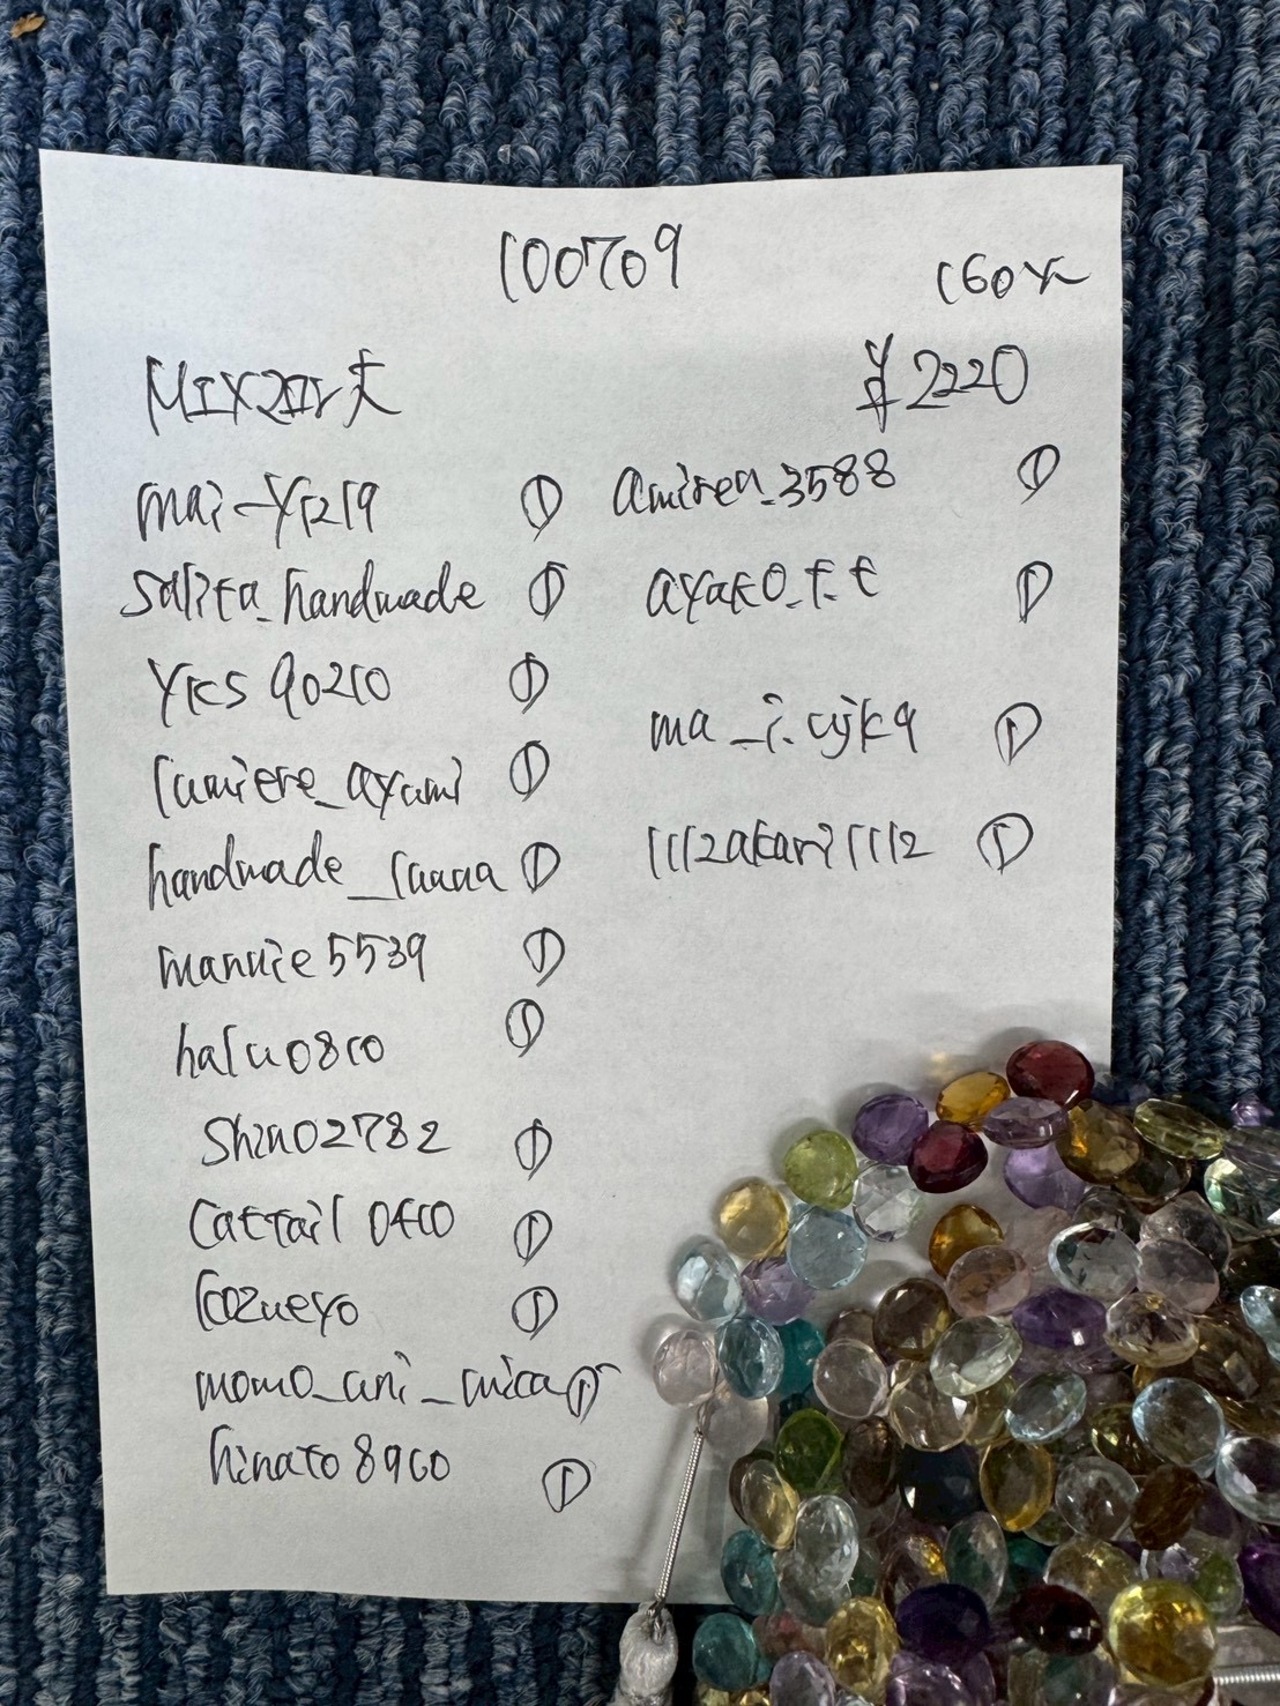 100709
160本
MIX2皿天
¥2220
mai-y1219 ①
salita_handmade ①
yks90210 ①
lumiere_ayumi ①
handmade_luuua ①
manuie5539 ①
halu0810 ①
shino2782 ①
cattail0410 ①
kozueyo ①
momo_uni_mica ①
hinato8910 ①
amiren_3588 ①
ayako_t.t ①
ma_i.cyjk9 ①
1112akari1112 ①